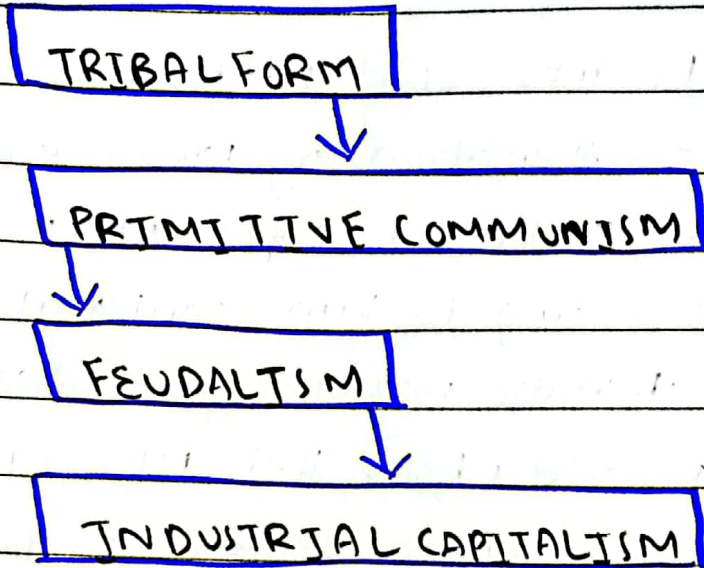 TRIBAL FORM
PRIMITIVE COMMUNISM
FEUDALISM
INDUSTRIAL CAPITALISM